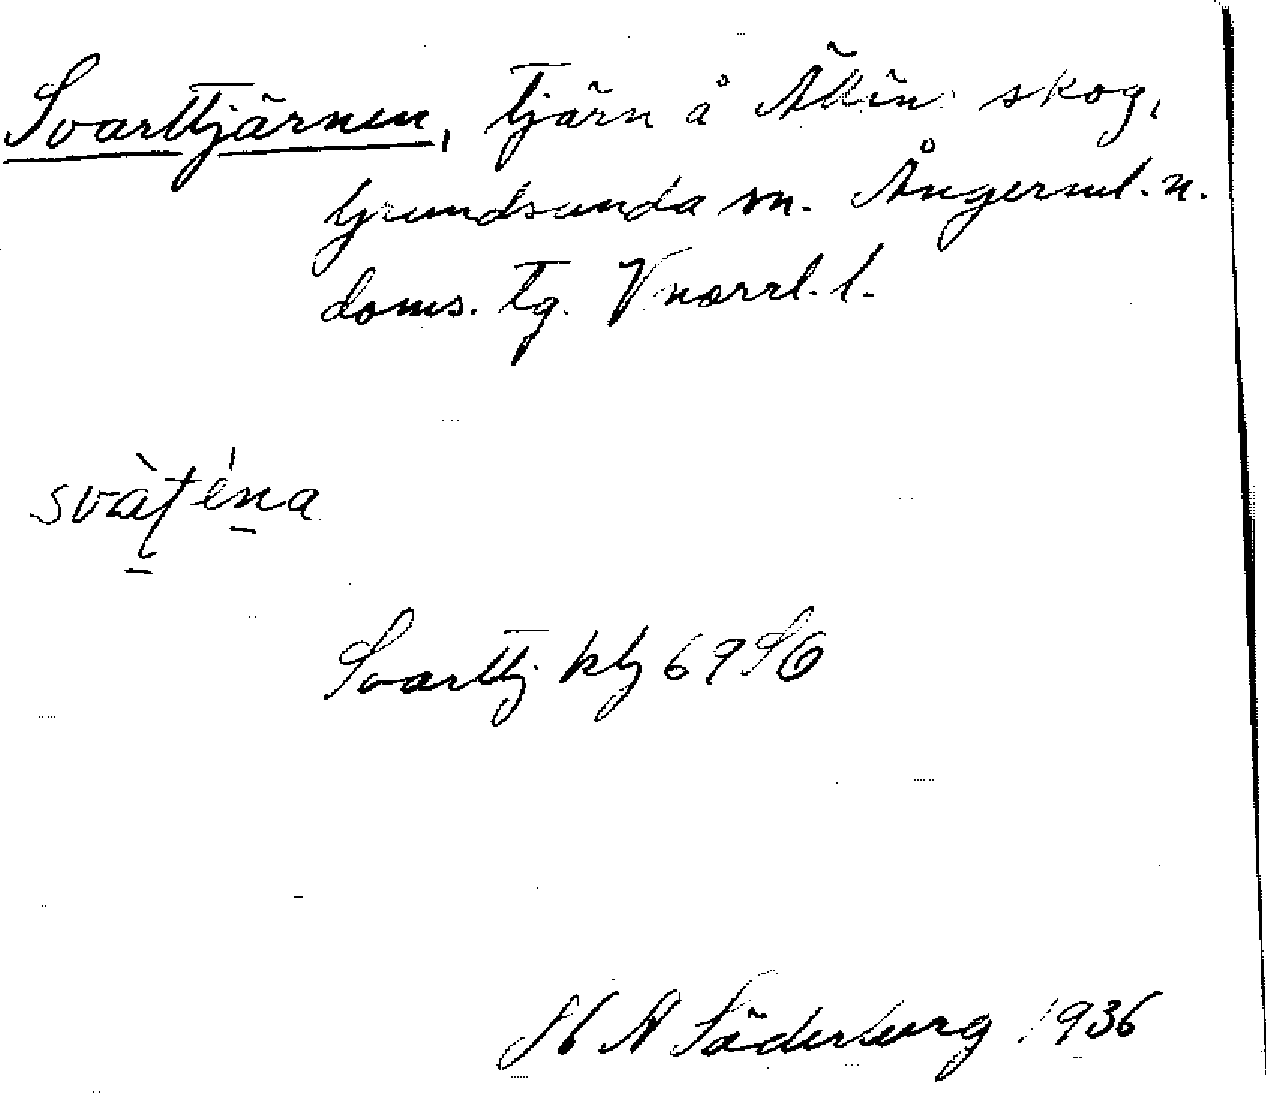 Svarttjärnen, tjärn å skog,
Grundsunda sn. Ångerml. n.
doms. tg. Vnorrl. l.
svàṭéna
Svarttj kbj 69 SO
H A Söderberg 1936